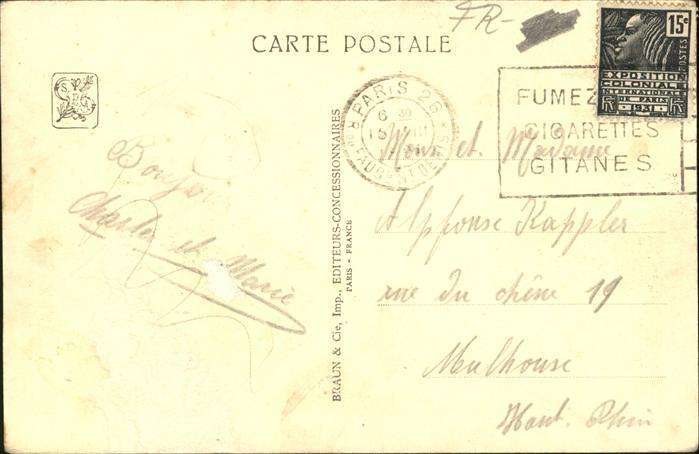 FR-
CARTE POSTALE
15c
POSTES
EXPOSITION
COLONIALE
INTERNATIONALE
DE PARIS
1931
RF RF
PARIS 26
6
FUMEZ
CIGARETTES
GITANES
Bonjour
Charles et Marie
BRAUN & Cie, Imp., EDITEURS-CONCESSIONNAIRES
PARIS - FRANCE
Mons et Madame
Alphonse Kappler
rue du chêne 19
Mulhouse
Haut. Rhin